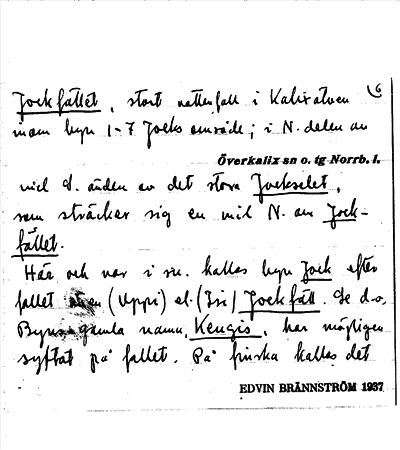 6
Jockfallet, stort vattenfall i Kalixälven
inom byn 1-7 Jocks område; i N. delen av
Överkalix sn o. tg Norrb. l.
vid S. änden av det stora Jockselet,
som sträcker sig en mil N. om Jock-
fallet.
Här och var i sn. kallas byn Jock efter
fallet även (Uppi) el. (Isi) Jockfall. Se d.o.
Byns gamla namn, Kengis, har möjligen
syftat på fallet. På finska kallas det
EDVIN BRÄNNSTRÖM 1937